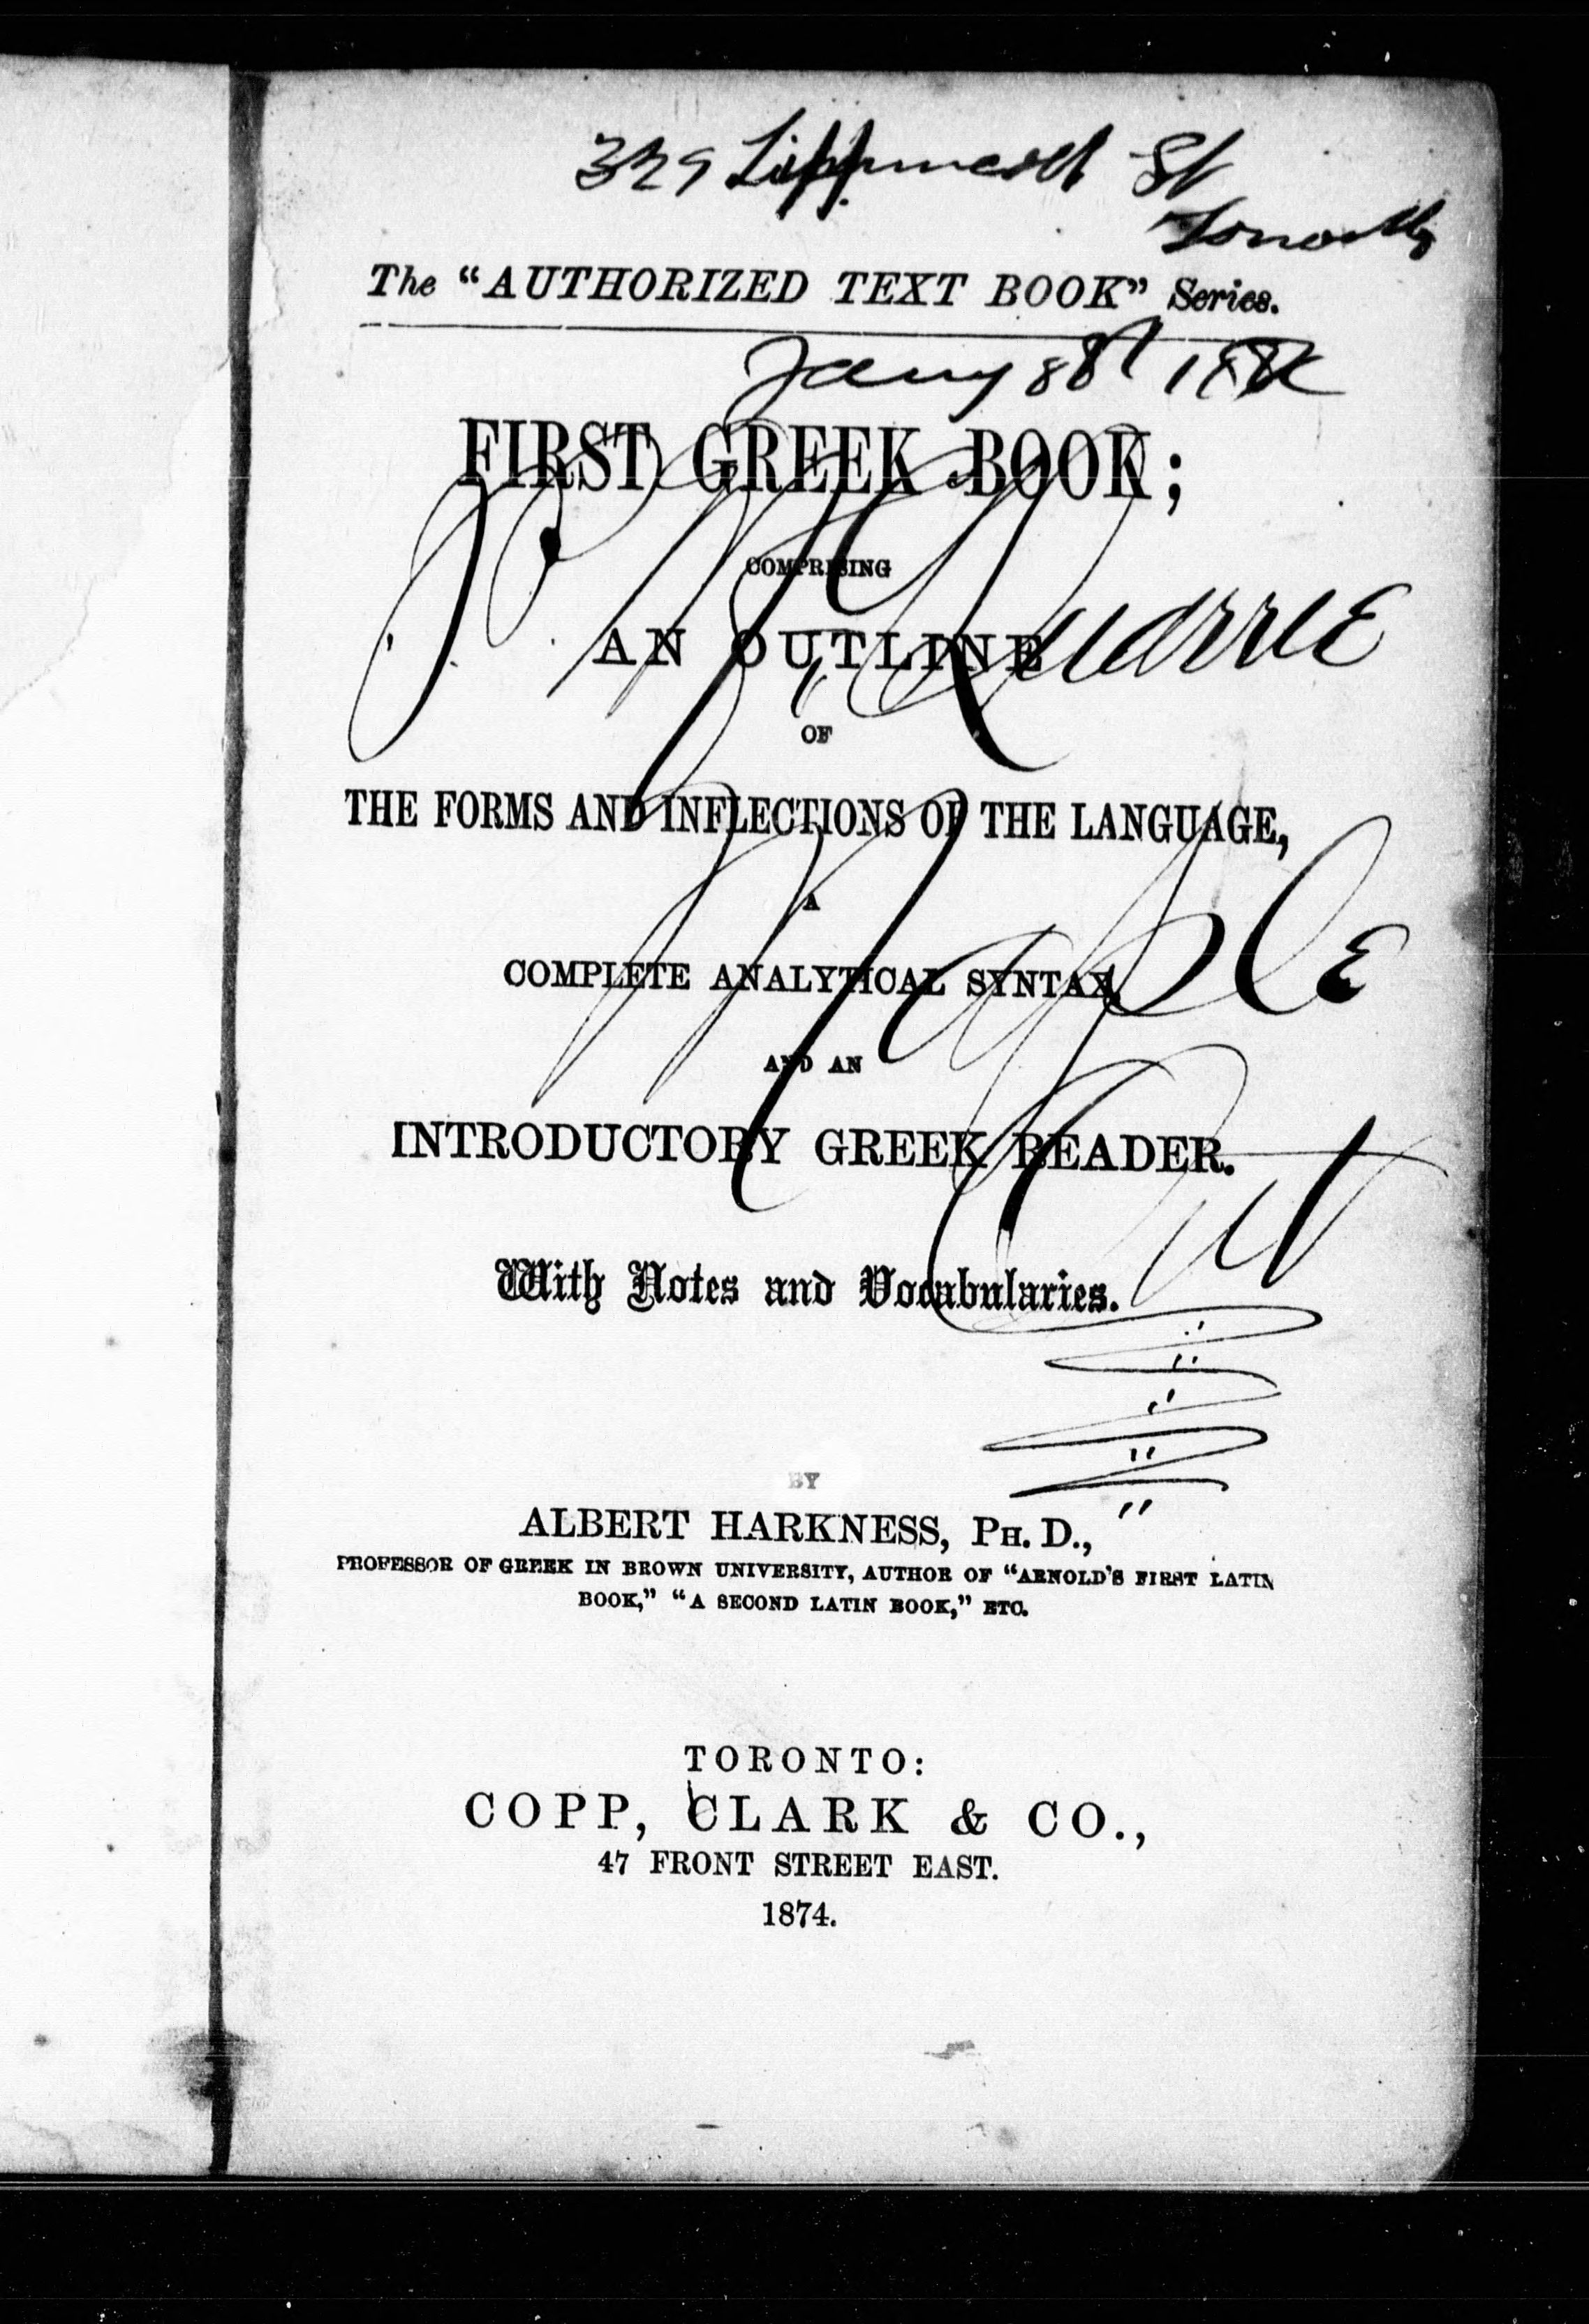 329 Lippincott St
Toronto
The “AUTHORIZED TEXT BOOK” Series.
Jany 8th
FIRST GREEK BOOK;
COMPRISING
AN OUTLINE
OF
THE FORMS AND INFLECTIONS OF THE LANGUAGE,
A
COMPLETE ANALYTICAL SYNTAX,
AND AN
INTRODUCTORY GREEK READER.
With Notes and Vocabularies.
BY
ALBERT HARKNESS, PH. D.,
PROFESSOR OF GREEK IN BROWN UNIVERSITY, AUTHOR OF “ARNOLD'S FIRST LATIN
BOOK,” “A SECOND LATIN BOOK,” ETC.
TORONTO:
COPP, CLARK & CO.,
47 FRONT STREET EAST.
1874.